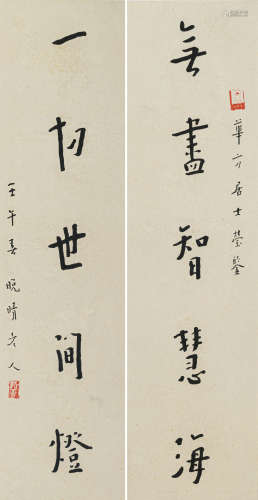 華方居士瑩鑒
無盡智慧海
一切世間燈
壬午春晚晴老人